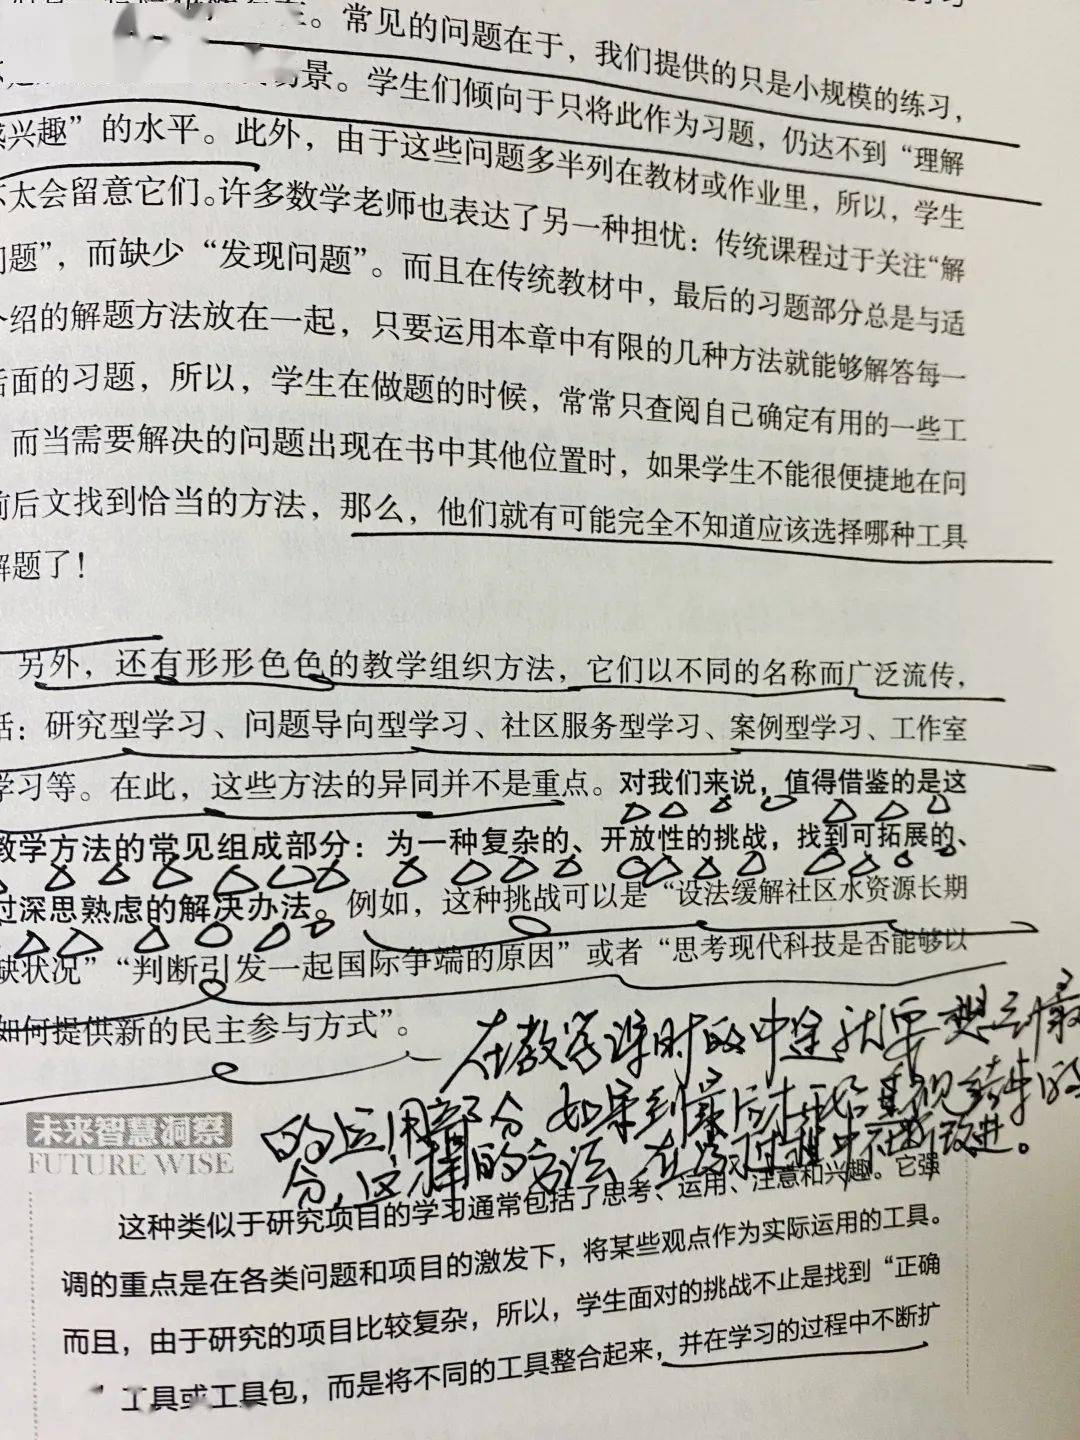 。常见的问题在于，我们提供的只是小规模的练习，
景。学生们倾向于只将此作为习题，仍达不到“理解
兴趣”的水平。此外，由于这些问题多半列在教材或作业里，所以，学生
太会留意它们。许多数学老师也表达了另一种担忧：传统课程过于关注“解
题”，而缺少“发现问题”。而且在传统教材中，最后的习题部分总是与适
绍的解题方法放在一起，只要运用本章中有限的几种方法就能够解答每一
面的习题，所以，学生在做题的时候，常常只查阅自己确定有用的一些工
而当需要解决的问题出现在书中其他位置时，如果学生不能很便捷地在问
前后文找到恰当的方法，那么，他们就有可能完全不知道应该选择哪种工具
解题了！
另外，还有形形色色的教学组织方法，它们以不同的名称而广泛流传，
括：研究型学习、问题导向型学习、社区服务型学习、案例型学习、工作室
学习等。在此，这些方法的异同并不是重点。对我们来说，值得借鉴的是这
教学方法的常见组成部分：为一种复杂的、开放性的挑战，找到可拓展的、
过深思熟虑的解决办法。例如，这种挑战可以是“设法缓解社区水资源长期
缺状况”“判断引发一起国际争端的原因”或者“思考现代科技是否能够以
如何提供新的民主参与方式”。
在教学课时的中途就要想到最
的运用部分 如果到最后才开始 结束的
分，这样的方法，在学习过程中不断改进。
未来智慧洞察
FUTURE WISE
这种类似于研究项目的学习通常包括了思考、运用、注意和兴趣。它强
调的重点是在各类问题和项目的激发下，将某些观点作为实际运用的工具。
而且，由于研究的项目比较复杂，所以，学生面对的挑战不止是找到“正确
”工具或工具包，而是将不同的工具整合起来，并在学习的过程中不断扩